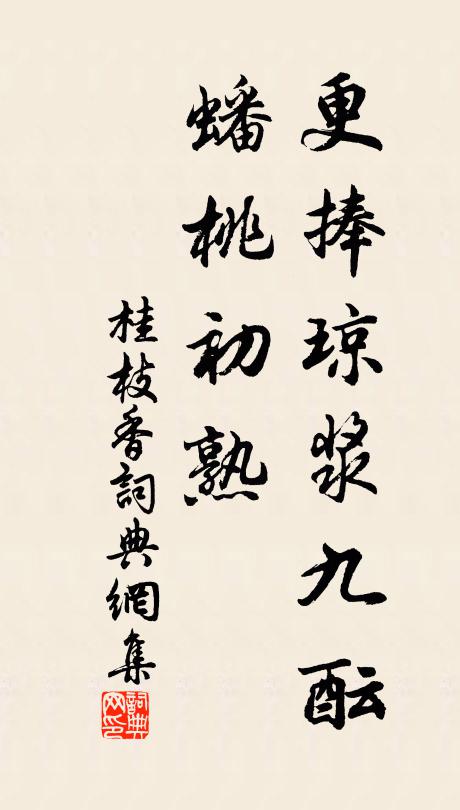 更捧琼漿九酝
蟠桃初熟
桂枝香詞典網集
詞典网印